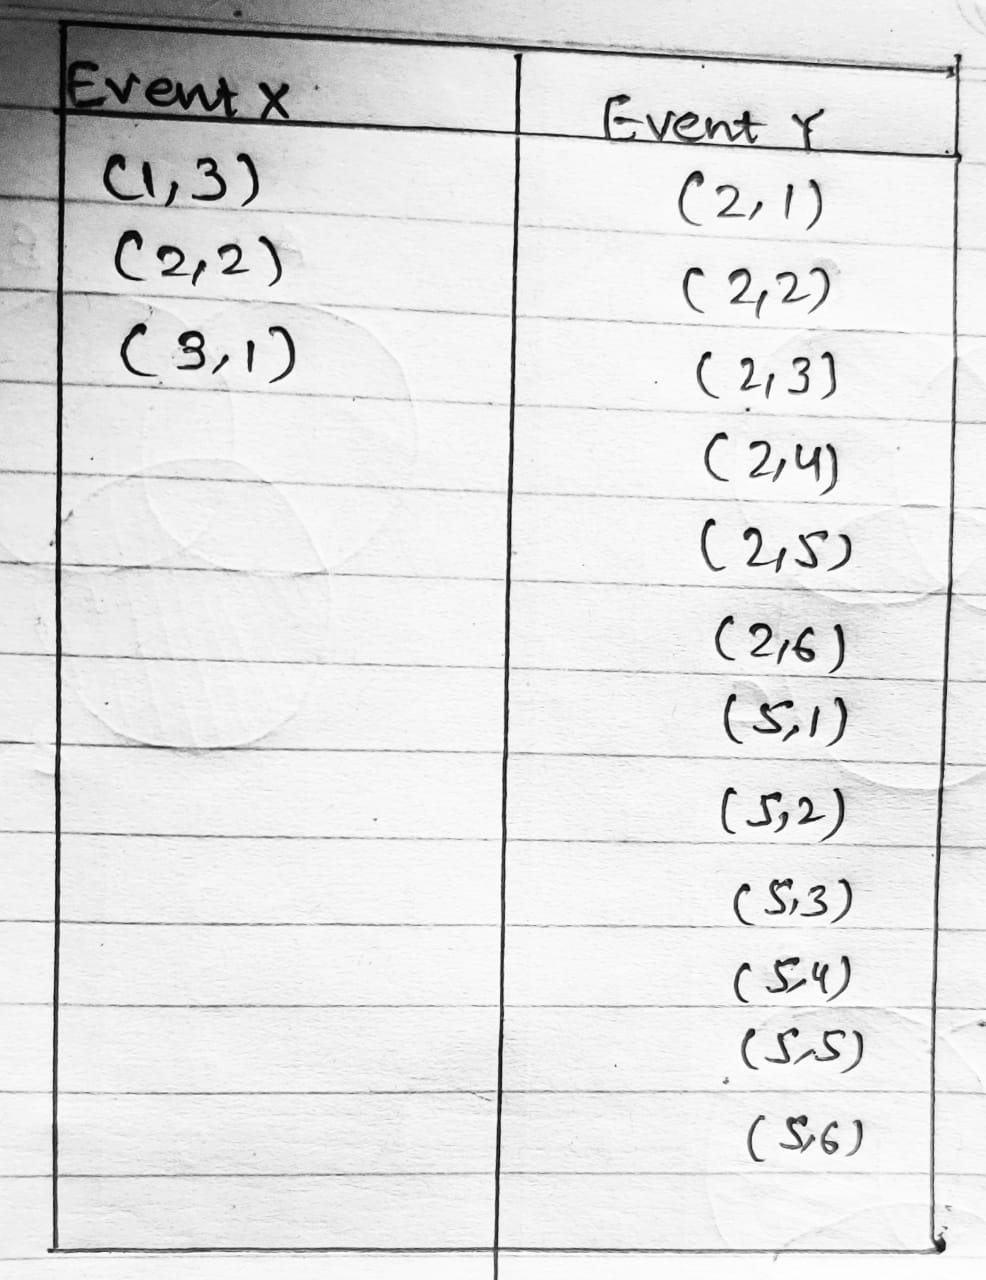 Event X Event Y
(1,3) (2,1)
(2,2) (2,2)
(3,1) (2,3)
(2,4)
(2,5)
(2,6)
(5,1)
(5,2)
(5,3)
(5,4)
(5,5)
(5,6)